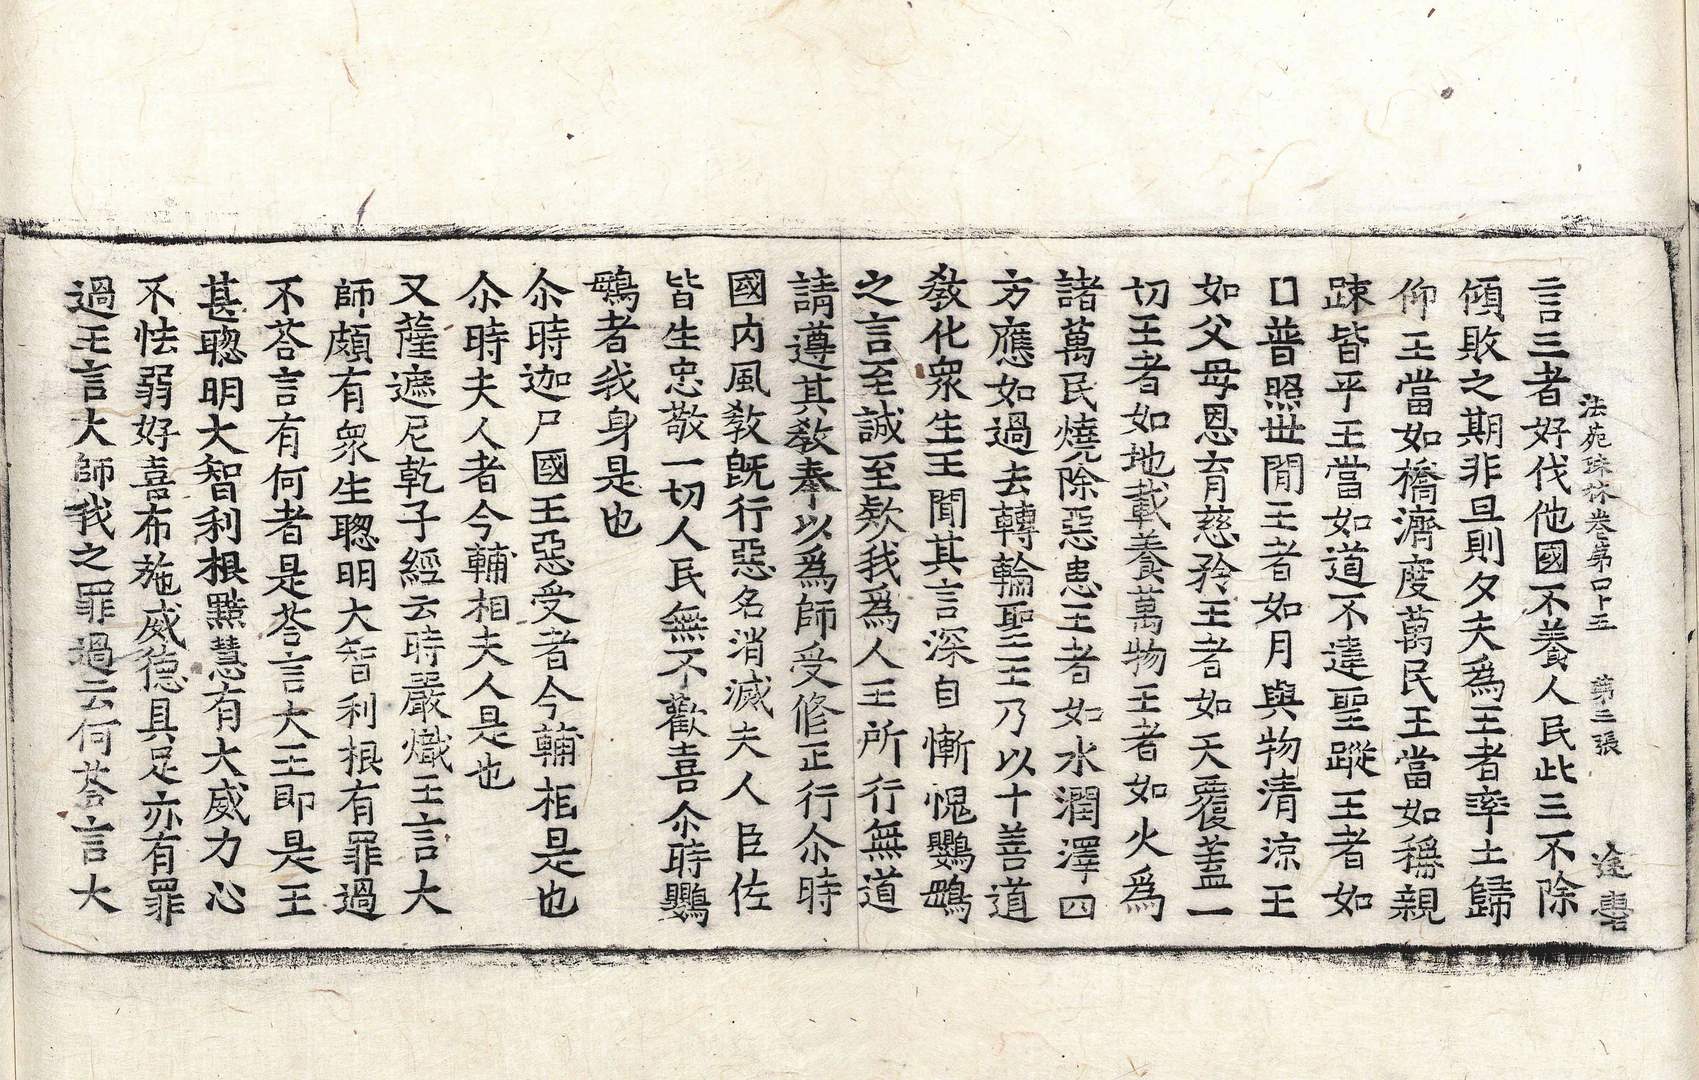 法苑珠林卷第四十五 第三張 送惠
言三者好伐他國不養人民此三不除
傾敗之期非旦則夕夫爲王者率土歸
仰王當如橋濟度萬民王當如稱親
踈皆平王當如道不違聖蹤王者如
日普照世閒王者如月與物清涼王
如父母恩育慈矜王者如天覆蓋一
切王者如地載養萬物王者如火爲
諸萬民燒除惡患王者如水潤澤四
方應如過去轉輪聖王乃以十善道
敎化衆生王聞其言深自慚愧鸚鵡
之言至誠至欵我爲人王所行無道
請遵其敎奉以爲師受修正行尒時
國内風敎旣行惡名消滅夫人臣佐
皆生忠敬一切人民無不歡喜尒時鸚
鵡者我身是也
尒時迦尸國王惡受者今輔相是也
尒時夫人者今輔相夫人是也
又薩遮尼乾子經云時嚴熾王言大
師頗有衆生聦明大智利根有罪過
不荅言有何者是荅言大王即是王
甚聦明大智利根黠慧有大威力心
不怯弱好喜布施威德具足亦有罪
過王言大師我之罪過云何荅言大